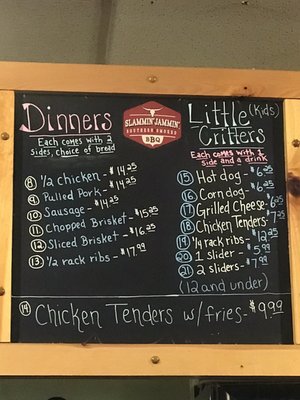 Dinners
Each comes with 2
sides, choice of bread
8 1/2 chicken - $14.25
9 Pulled Pork - $14.25
10 Sausage - $14.25
11 Chopped Brisket - $15.25
12 Sliced Brisket - $16.25
13 1/2 rack ribs - $17.99
SLAMMIN' JAMMIN'
SOUTHERN SMOKED
BBQ
Little (Kids)
Critters
Each comes with 1
side and a drink
15 Hot dog - $6.25
16 Corn dog - $6.25
17 Grilled Cheese - $6.25
18 Chicken Tenders - $7.25
19 1/4 rack ribs - $12.25
20 1 slider - $5.99
21 2 sliders - $7.99
(12 and under)
14 Chicken Tenders w/fries - $9.99